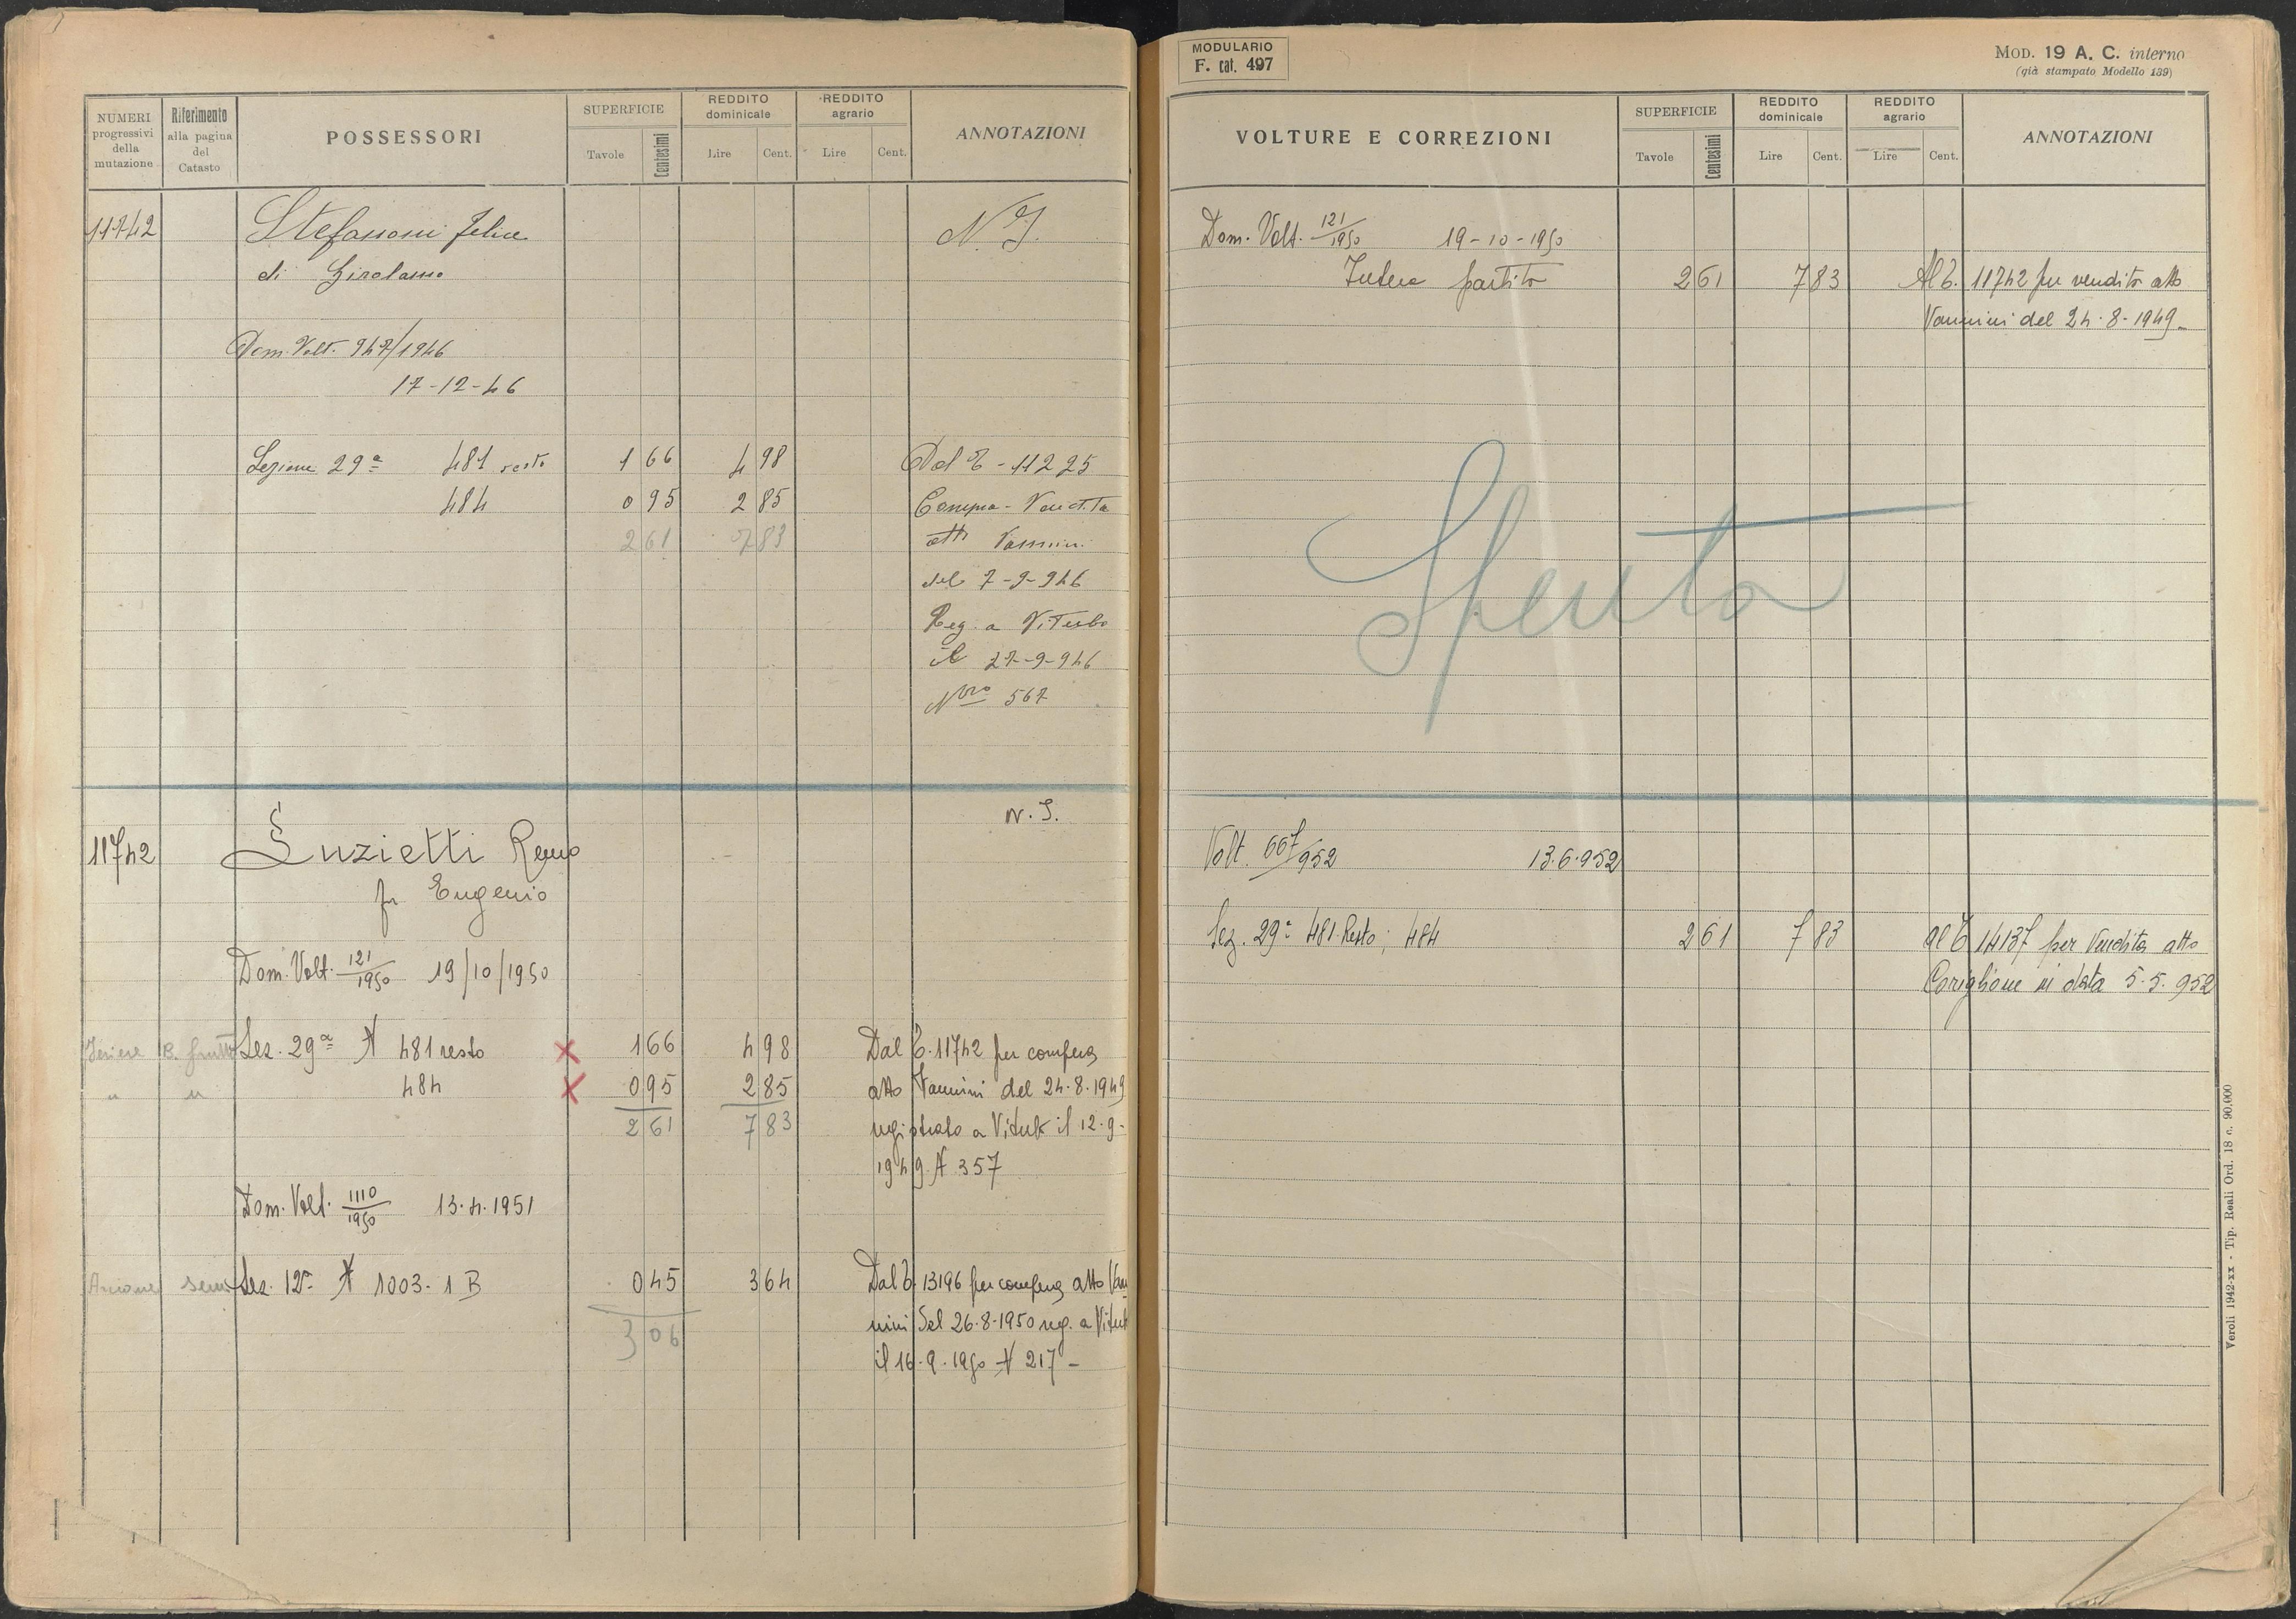 NUMERI progressivi della mutazione
Riferimento alla pagina del Catasto
POSSESSORI
SUPERFICIE
Tavole Centesimi
REDDITO dominicale
Lire Cent.
REDDITO agrario
Lire Cent.
ANNOTAZIONI
11742 Stefanoni Felice
di Girolamo
Dom. Volt. 947/1946
17-12-46
Sezione 29ª 481 resto 1 66 4 98
484 0 95 2 85
2 61 7 83
Dal - 11225
Compra-Vendita
atto Vannini
del 7-9-946
Reg. a Viterbo
il 27-9-946
Nro 567
11742
Luzietti Remo
fu Eugenio
Dom. Volt. 121/1950 19/10/1950
Sez. 29ª N 481 resto x 1 66 4 98
484 x 0 95 2 85
2 61 7 83
Dal 11742 per compera
atto Vannini del 24.8.1949
registrato a Viterb il 12.9.
1949 N 357
Dom. Volt. 1110/1950 13.4.1951
Sez. 12ª N 1003. 1 B 0 45 3 64
3 06
Dal 13196 per compera atto Van
nini del 26.8.1950 reg. a Viterb
il 16.9.1950 N 217 -
MODULARIO
F. cat. 497
MOD. 19 A. C. interno
(già stampato Modello 139)
VOLTURE E CORREZIONI
SUPERFICIE
Tavole Centesimi
REDDITO dominicale
Lire Cent.
REDDITO agrario
Lire Cent.
ANNOTAZIONI
Dom. Volt. 121/1950 19-10-1950
Intera partita 2 61 7 83 Al 11742 per vendita atto
Vannini del 24.8.1949
Spenta
Volt. 667/952 13.6.952
Sez. 29ª 481 Resto; 484 2 61 7 83 al 14137 per Vendita atto
Coriglione in data 5.5.952
Veroli 1942-XX - Tip. Reali Ord. 18 c. 90.000